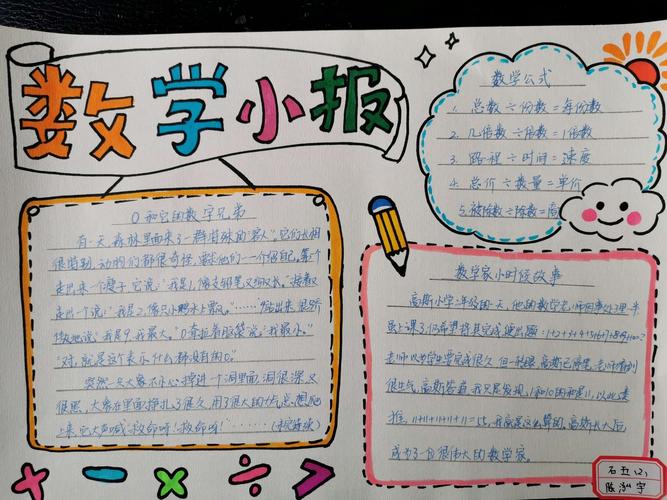 数学小报
数学公式
1. 总数÷份数=每份数
2. 几倍数÷倍数=1倍数
3. 路程÷时间=速度
4. 总价÷数量=单价
5. 被除数÷除数=商
0和它的数字兄弟
有一天,森林里面来了一群特殊的"客人"。它们长相
很奇怪,动物们都很奇怪,要求他们一个介绍自己,第一个
走出来个瘦子,它说:"我是1,像支铅笔又细又长。"接着又
走出一个说:"我是2,像只小鸭水上鸭。"……"9站出来,很骄
傲地说:我是9,我最大。"0耷拉着脑袋说:"我最小。"
"对,就是这个表示什么都没有的0。"
突然一只大象不小心掉进一个洞里面,洞很深又
很黑,大象在里面挣扎了很久,用了很大的力气,总想爬
上来,它大声喊:"救命呀!救命呀!"……(未完待续)
数学家小时候故事
高斯小学二年级的一天,他的数学老师因事处理一半
虽上课了,仍希望将其完成,便出题:1+2+3+4+5+6+7+8+9+10=?
老师以为学生要完成很久,但一转眼,高斯已停笔,老师看到
很生气,高斯答道,我只是发现,1和10的和是11,以此类
推,11+11+11+11+11=55,我就是这么算的。高斯长大后
成为了一位很伟大的数学家。
石五(2)
陈泓宇
+ - × ÷ >